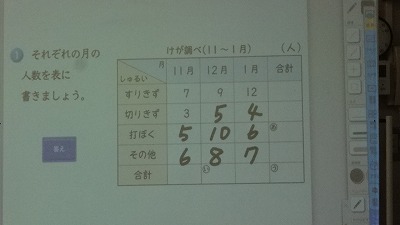 1 それぞれの月の
人数を表に
書きましょう。
答え
けが調べ(11〜1月) (人)
月 しゅるい 11月 12月 1月 合計
すりきず 7 9 12
切りきず 3 5 4
打ぼく 5 10 6 あ
その他 6 8 7
合計 い う